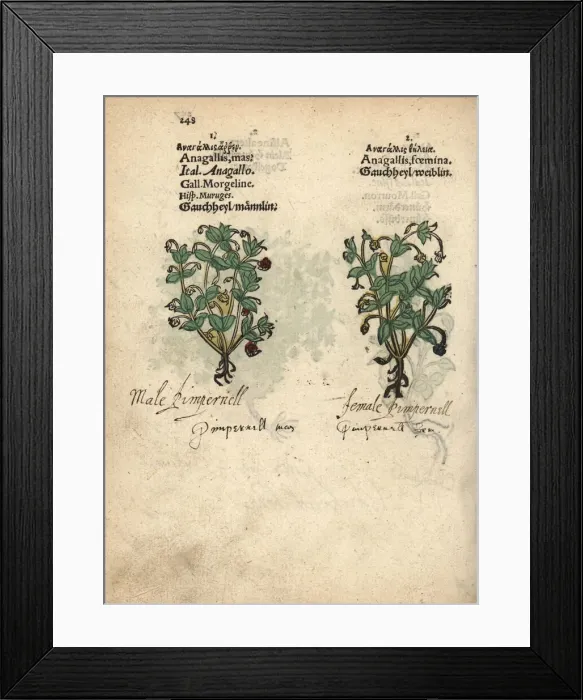 248
1.
Anagallis, mas.
Ital. Anagallo.
Gall. Morgeline.
Hisp. Muruges.
Gauchheyl/männlin.
2.
Anagallis, fœmina.
Gauchheyl/weiblin.
Male Pimpernell
Pimpernell mas
female Pimpernell
Pimpernell